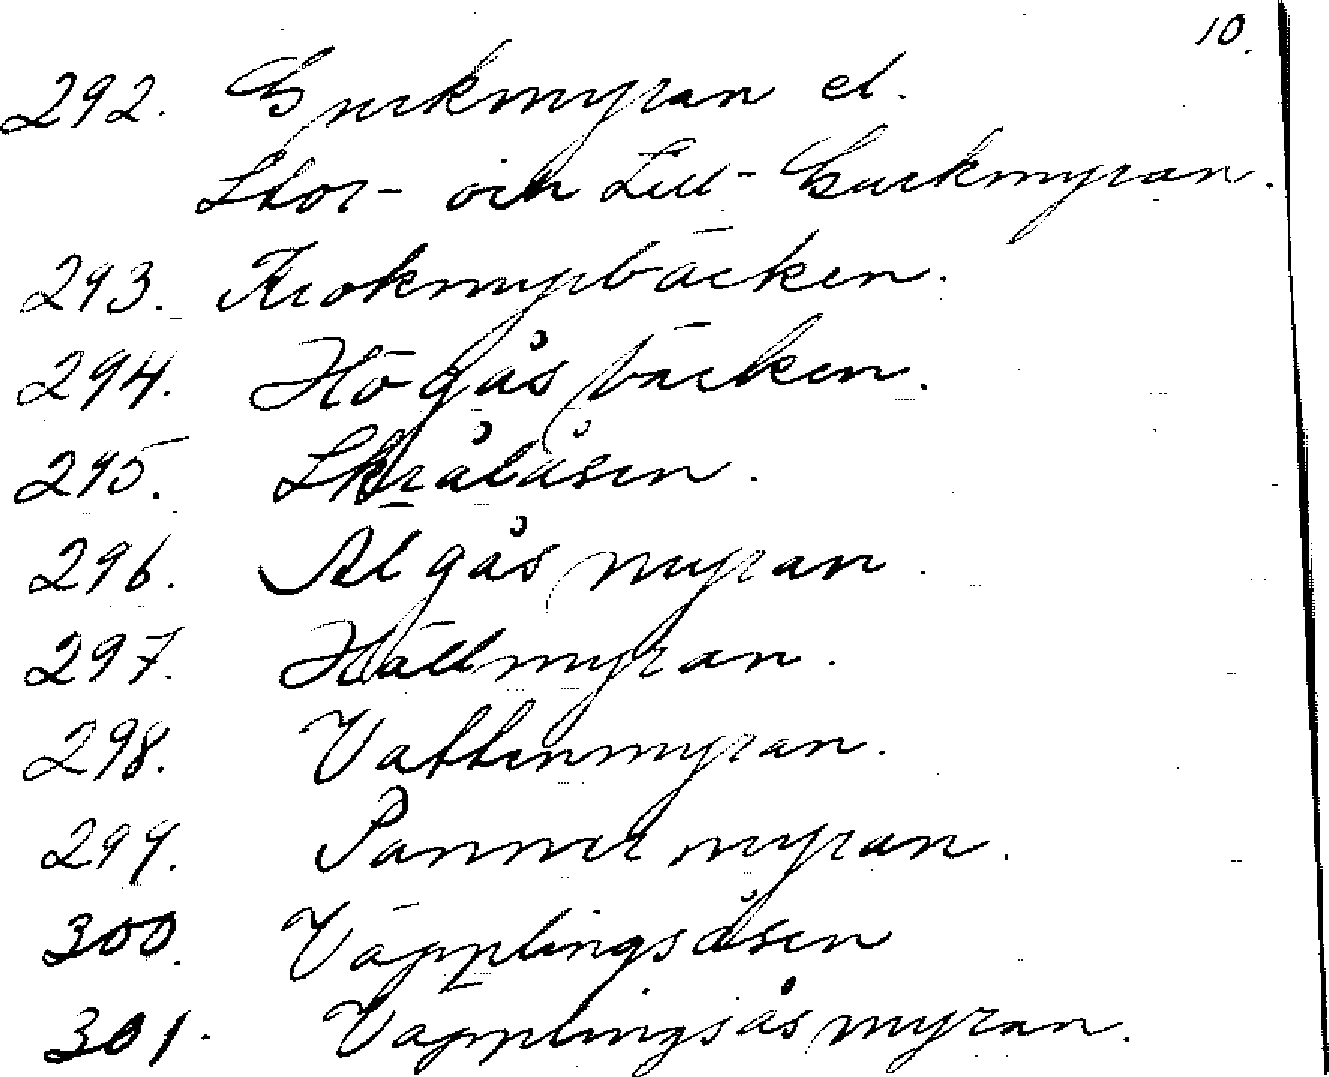 10.
292. Surkmyran el.
Stor- och Lill- Surkmyran.
293. Krokmyrbäcken.
294. Högåsbäcken.
295. Skrålåsen.
296. Älgåsmyran.
297. Hällmyran.
298. Vattenmyran.
299. Pannmyran.
300. Väpplingsåsen
301. Väpplingsåsmyran.